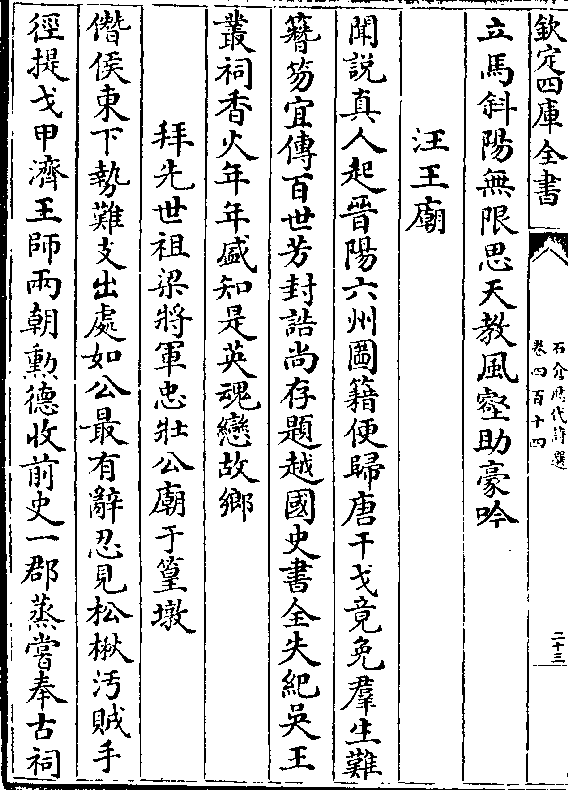 欽定四庫全書
石倉歷代詩選
卷四百十四
二十三
立馬斜陽無限思天教風壑助豪吟
汪王廟
聞說真人起晉陽六州圖籍便歸唐干戈竟免羣生難
簪笏宜傳百世芳封誥尚存題越國史書全失紀吳王
叢祠香火年年盛知是英魂戀故鄉
拜先世祖梁將軍忠壯公廟于篁墩
僭侯東下勢難支出處如公最有辭忍見松楸汚賊手
徑提戈甲濟王師兩朝勲德收前史一郡蒸嘗奉古祠